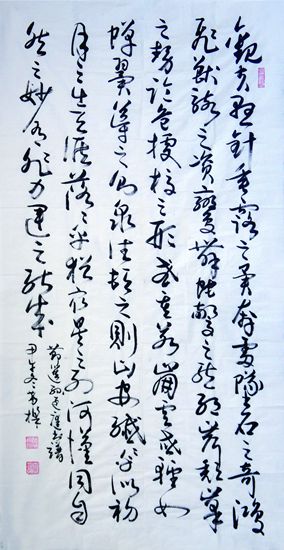 觀夫懸針垂露之異奔雷墜石之奇鴻
飛獸駭之資鸞舞蛇驚之態絕岸頹峯
之勢臨危據槁之形或重若崩雲或輕如
蟬翼導之則泉注頓之則山安纖々乎似初
月之出天涯落々乎猶眾星之列河漢同自
然之妙有非力運之能成
節選孫過庭書譜
尹